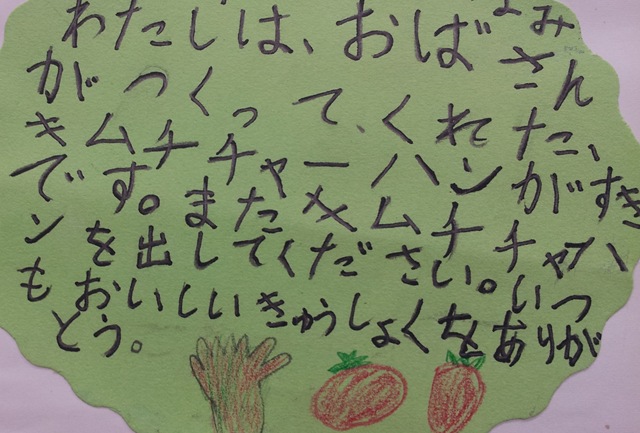 わたしは、おば みさん
がつくって、くれた、
キムチチャーハンがすき
です。またキムチチャハ
ンを出してください。いつ
もおいしいきゅうしょくをありが
とう。